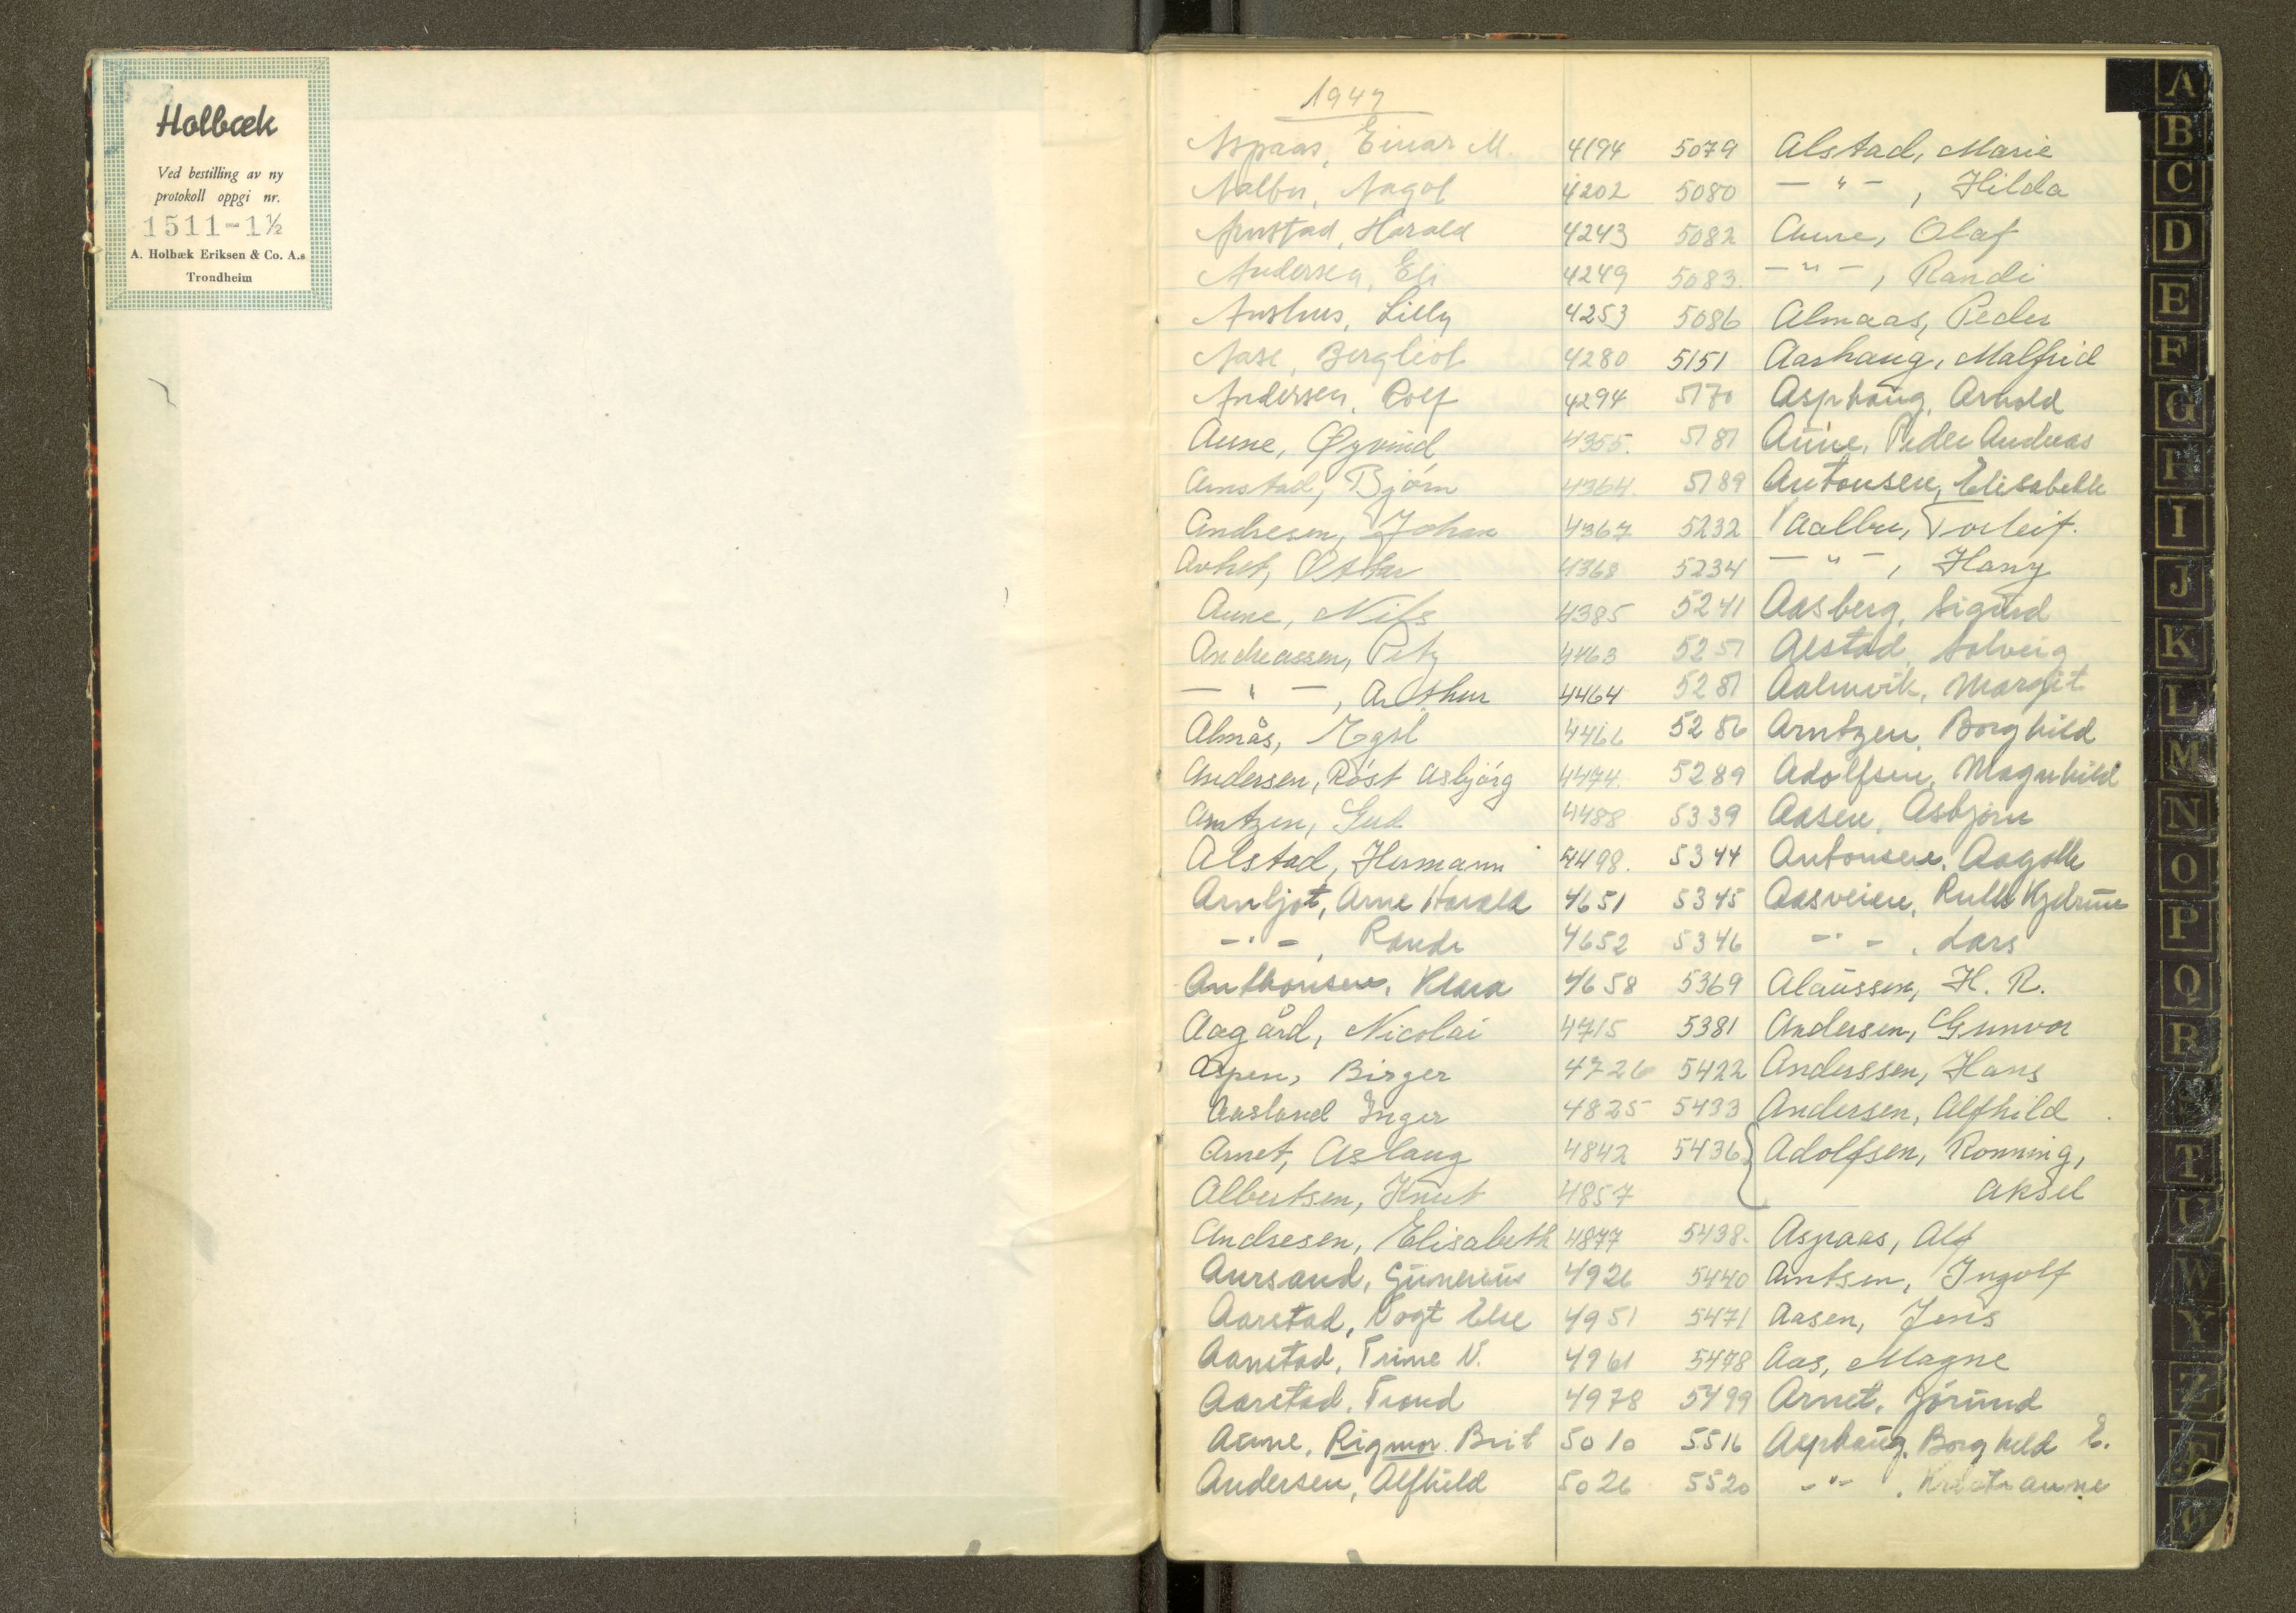 Holbæk
Ved bestilling av ny
protokoll oppgi nr.
1511-1½
A. Holbæk Eriksen & Co. A.s
Trondheim
1947
Aspaas, Einar M. 4194 5079 Alstad, Marie
Aalbu, Aagot 4202 5080 — " — , Hilda
Aunstad, Harald 4243 5082 Aune, Olaf
Andersen, Eli 4249 5083. — " — , Randi
Aushus, Lilly 4253 5086 Almaas, Peder
Aase, Bergliot 4280 5151 Aashaug, Malfrid
Andersen, Rolf 4294 5170 Asphaug, Arnold
Aune, Øyvind 4355. 5181 Aune, Peder Andreas
Amstad, Bjørn 4364. 5189 Antonsen, Elisabeth
Andresen, Johan 4367 5232 Aalbu, Torleif.
Arket, Ottar 4368 5234 — " — , Harry
Aune, Nils 4385 5241 Aasberg, Sigurd
Andreassen, Petz 4463 5251 Alstad, Solveig
— " — , Arthur 4464 5281 Aalmvik, Margit
Almås, Egil 4466 5286 Arntzen, Borghild
Andersen, Røst Asbjørg 4474. 5289 Adolfsen, Magnhild
Arntzen, Gud 4488 5339 Aasen, Asbjørn
Alstad, Hermann 4498. 5344 Antonsen, Aagoth
Arnljot, Arne Harald 4651 5345 Aasveien, Ruth Kjedrun
— " — , Randi 4652 5346 — " — , Lars
Anthonsen, Klara 4658 5369 Alaussen, H. R.
Aagård, Nicolai 4715 5381 Andersen, Gunvor
Aspen, Birger 4726 5422 Anderssen, Hans
Aasland Inger 4825 5433 Andersen, Alfhild
Arnet, Aslaug 4842 5436 Adolfsen, Ronning,
Albertsen, Knut 4857 Aksel
Andresen, Elisabeth 4877 5438. Aspaas, Alf
Aursand, Gunerius 4926 5440 Arntsen, Ingolf
Aarstad, Vogt Else 4951 5471 Aasen, Jens
Aanstad, Trine N. 4961 5478 Aas, Magne
Aarstad, Trond 4978 5499 Arnet, Jørund
Aune, Rigmor Brit 5010 5516 Asphaug, Borghild E.
Andersen, Alfhild 5026 5520 — " — , Kristianne
A
B
C
D
E
F
G
H
I
J
K
L
M
N
O
P
Q
R
S
T
U
W
Y
Z
Æ
Ø